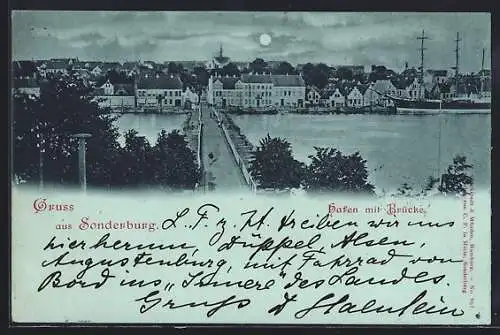 Gruss
aus Sonderburg.
Hafen mit Brücke.
L. F. z. Zt. treiben wir uns
hier herum, Düppel, Alsen,
Augustenburg, mit Fahrrad von
Bord ins "Innere" des Landes.
Gruss